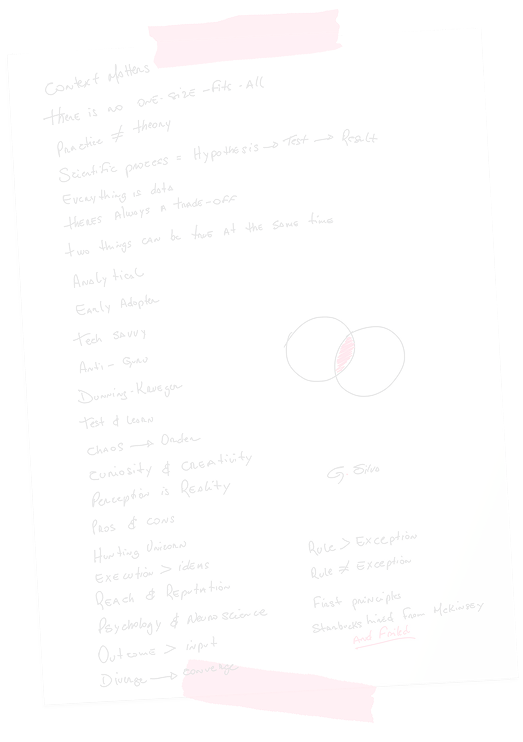 Context Matters
There is no one-size-fits-all
Practice ≠ theory
Scientific process = Hypothesis → Test → Result
Everything is data
theres always a trade-off
two things can be true at the same time
Analytical
Early Adopter
Tech savvy
Anti-Guru
Dunning-Kruger
Test & Learn
chaos → Order
curiosity & creativity
Perception is Reality
Pros & cons
Hunting Unicorn
Execution > ideas
Reach & Reputation
Psychology & Neuroscience
Outcome > input
Diverge → converge
G. Silva
Rule > Exception
Rule ≠ Exception
First principles
Starbucks hired from McKinsey
and failed